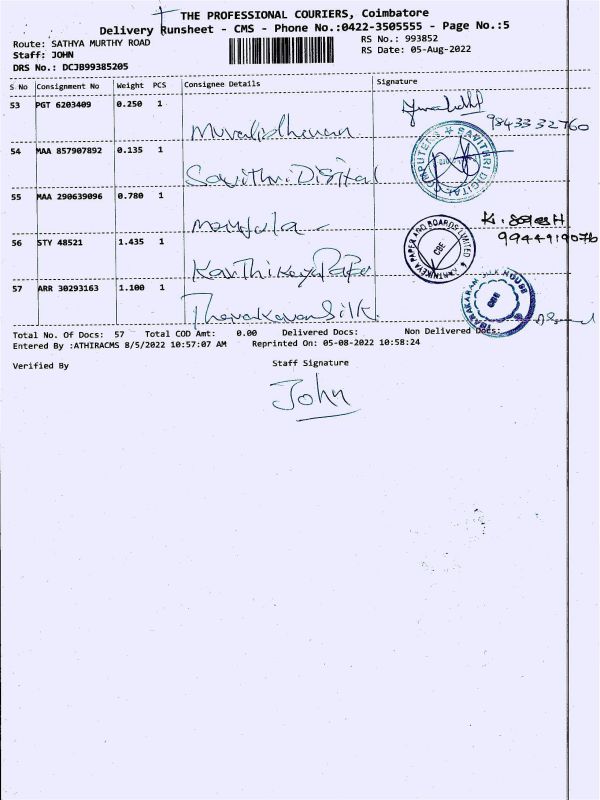 THE PROFESSIONAL COURIERS, Coimbatore
Delivery Runsheet - CMS - Phone No.:0422-3505555 - Page No.:5
Route: SATHYA MURTHY ROAD RS No.: 993852
Staff: JOHN RS Date: 05-Aug-2022
DRS No.: DCJB99385205
S No Consignment No Weight PCS Consignee Details Signature
53 PGT 6203409 0.250 1
Muralidharan 9843332760
54 MAA 857907892 0.135 1
Savithri Digital COMPUTERS SAVITARI DIGITAL
55 MAA 290639096 0.780 1
manjula 9944919076
56 STY 48521 1.435 1
Karthikeya Paper PAPER AND BOARDS LIMITED KARTHIKEYA CBE
57 ARR 30293163 1.100 1
SILK HOUSE CBE
Total No. Of Docs: 57 Total COD Amt: 0.00 Delivered Docs: Non Delivered Docs:
Entered By :ATHIRACMS 8/5/2022 10:57:07 AM Reprinted On: 05-08-2022 10:58:24
Verified By Staff Signature
John